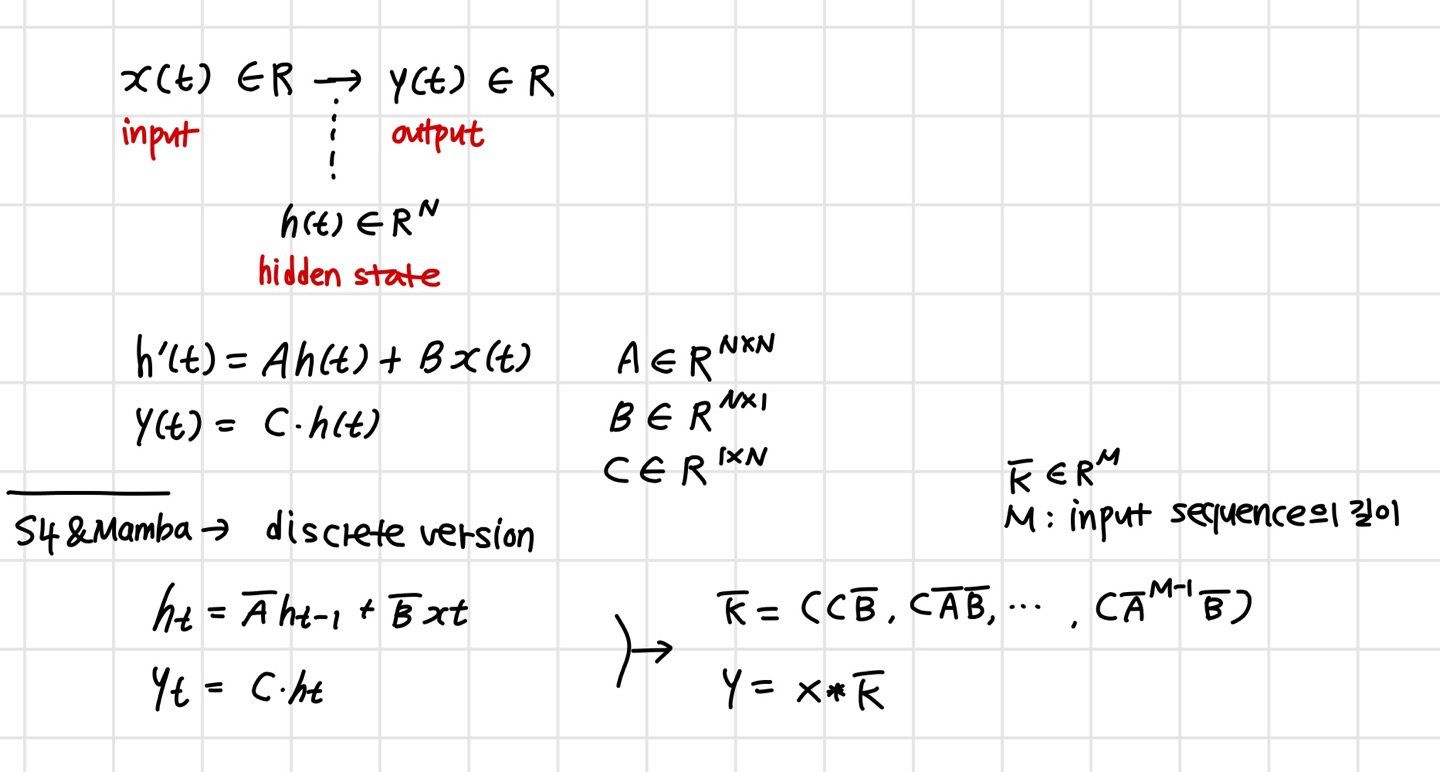 x(t) ∈ R → y(t) ∈ R
input output
h(t) ∈ R^N
hidden state
h'(t) = Ah(t) + Bx(t) A ∈ R^{N×N}
y(t) = C·h(t) B ∈ R^{N×1}
C ∈ R^{1×N}
K̅ ∈ R^M
M : input sequence의 길이
S4 & Mamba → discrete version
h_t = A̅h_{t-1} + B̅x_t
y_t = C·h_t
K̅ = (CB̅, CA̅B̅, ⋯ , CA̅^{M-1}B̅)
y = x * K̅